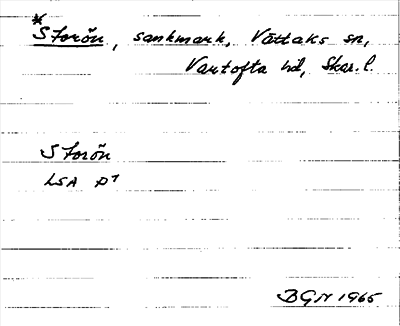 *Storön, sankmark, Vättaks sn,
Vartofta hd, Skar. l.
Storön
LSA D7
BGN 1965